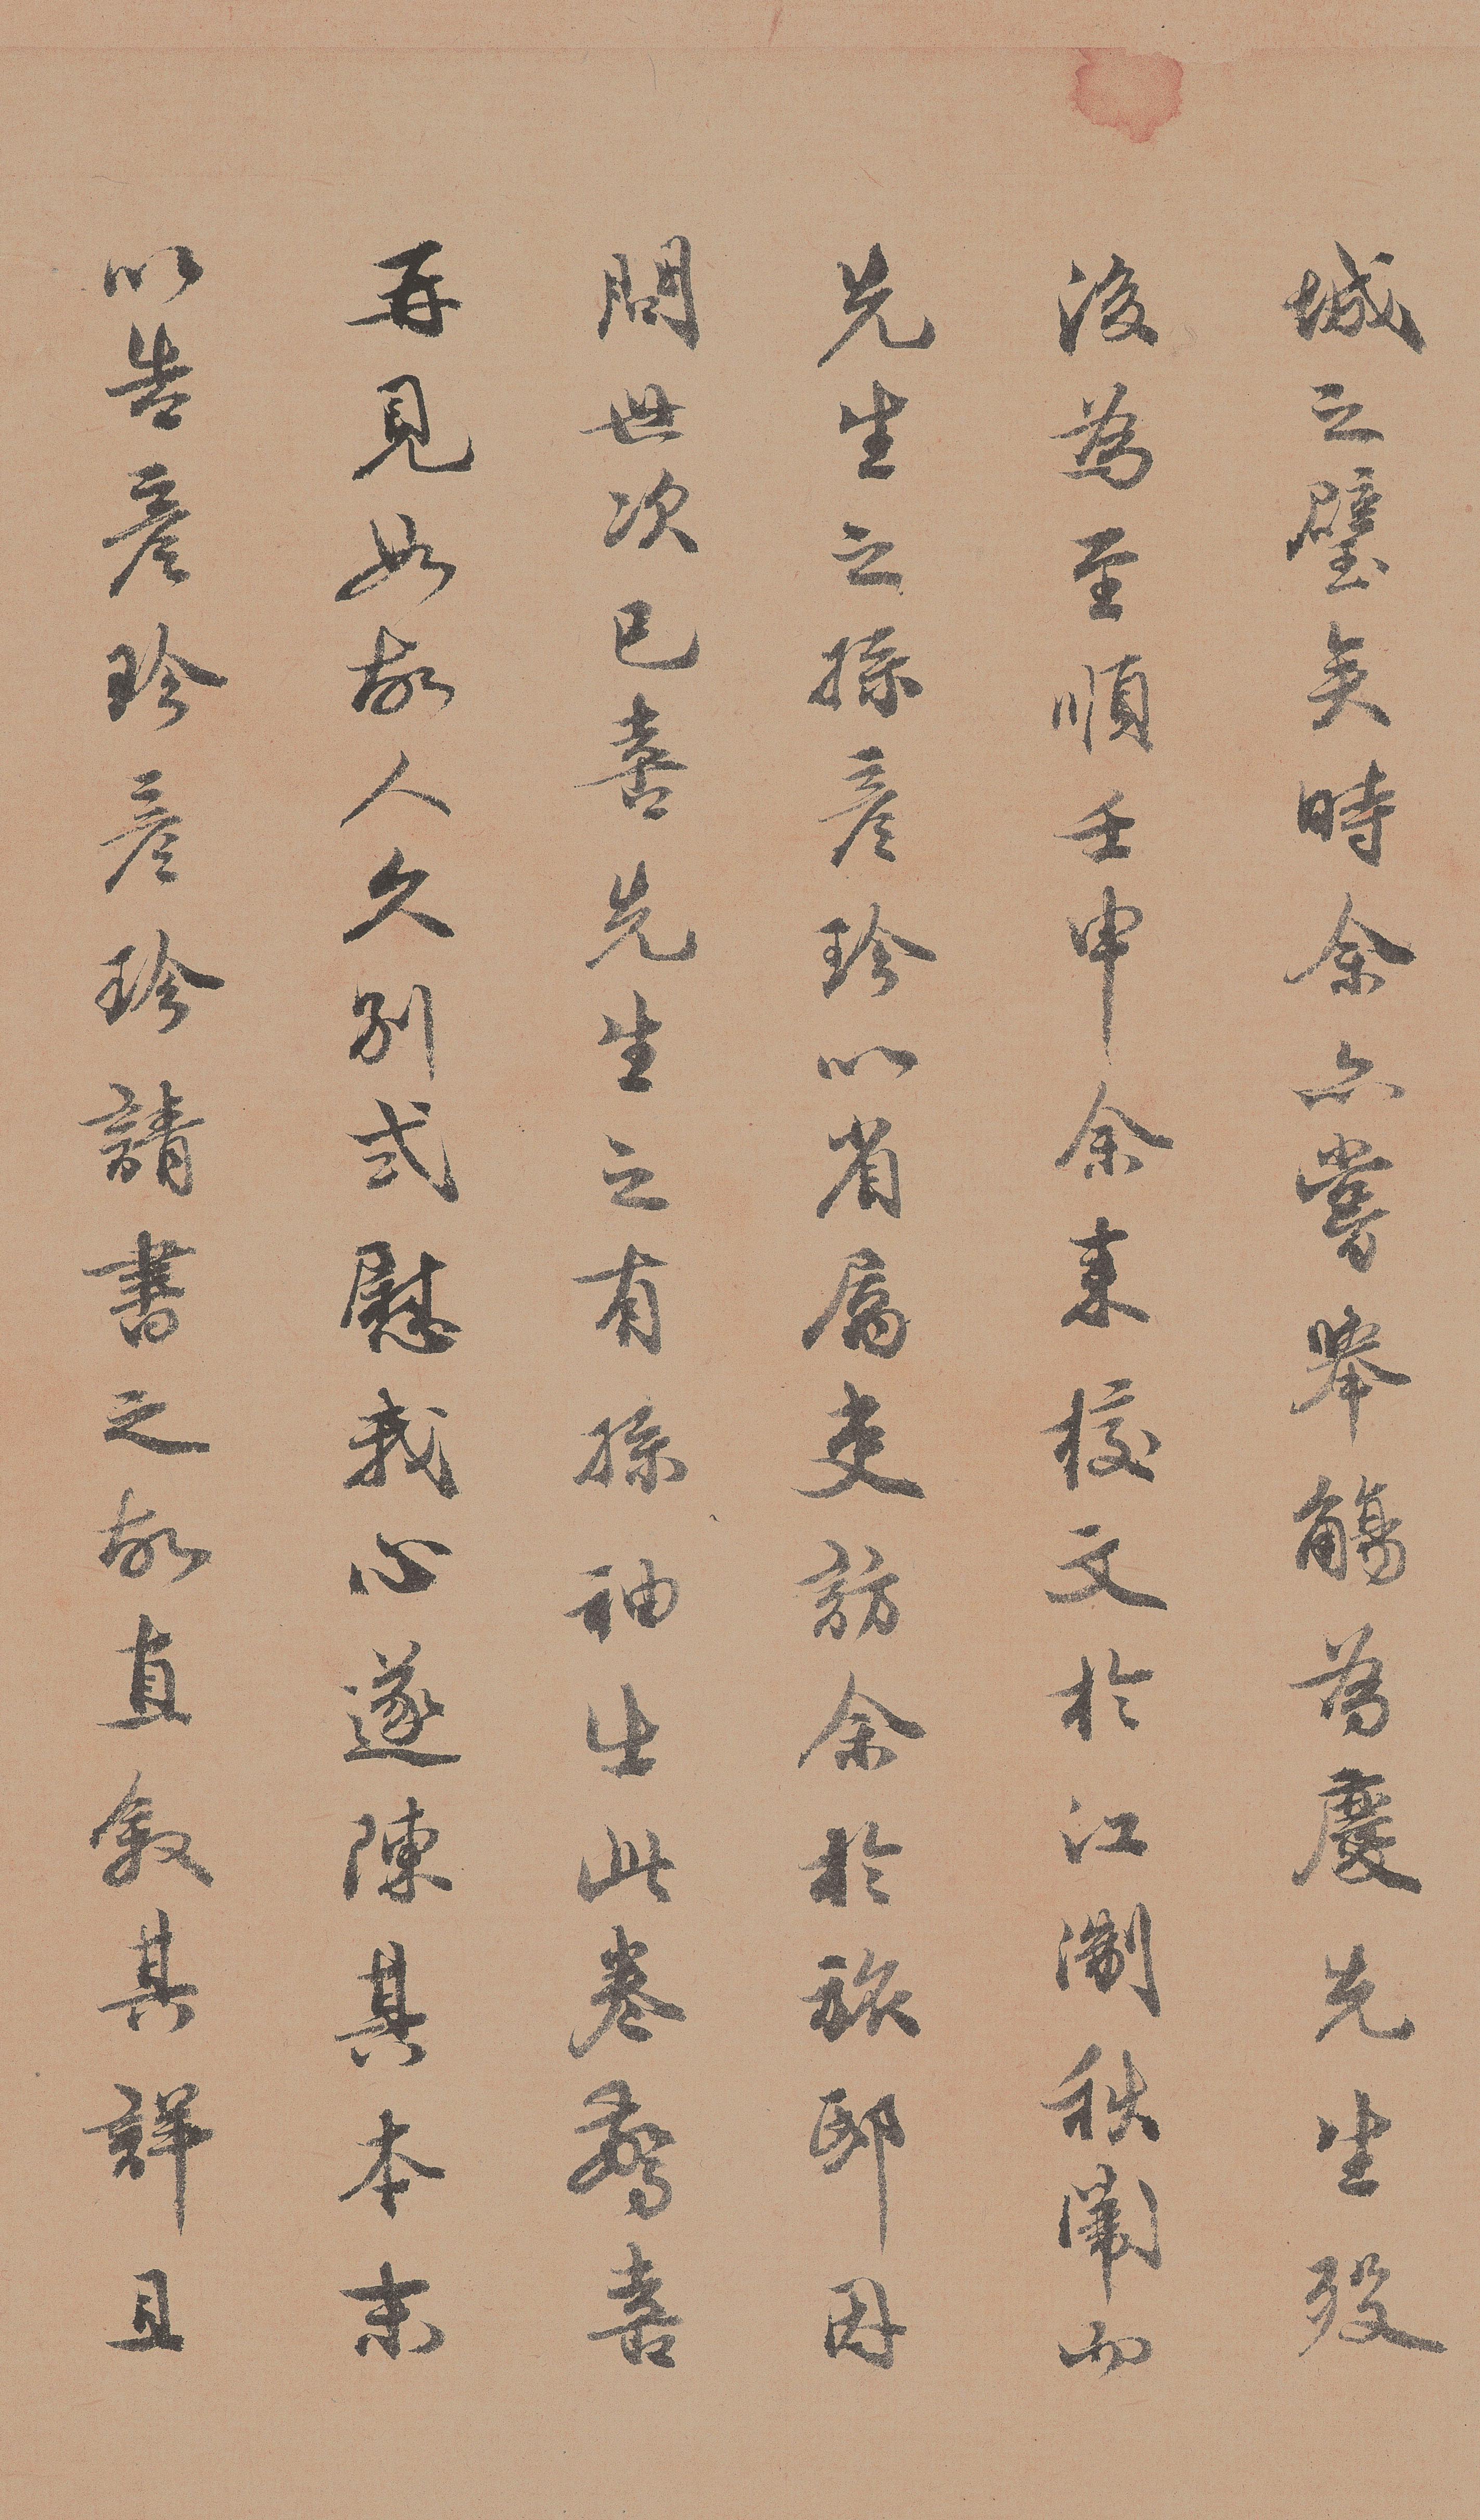 城之璧矣時余亦嘗舉觴為慶先生歿
後為至順壬申余来校文於江浙秋闈而
先生之孫彥珍以省屬吏訪余於旅邸因
問世次已喜先生之有孫袖出此卷驚喜
再見如故人久別式慰我心遂陳其本末
以告彥珍彥珍請書之故直敘其詳且